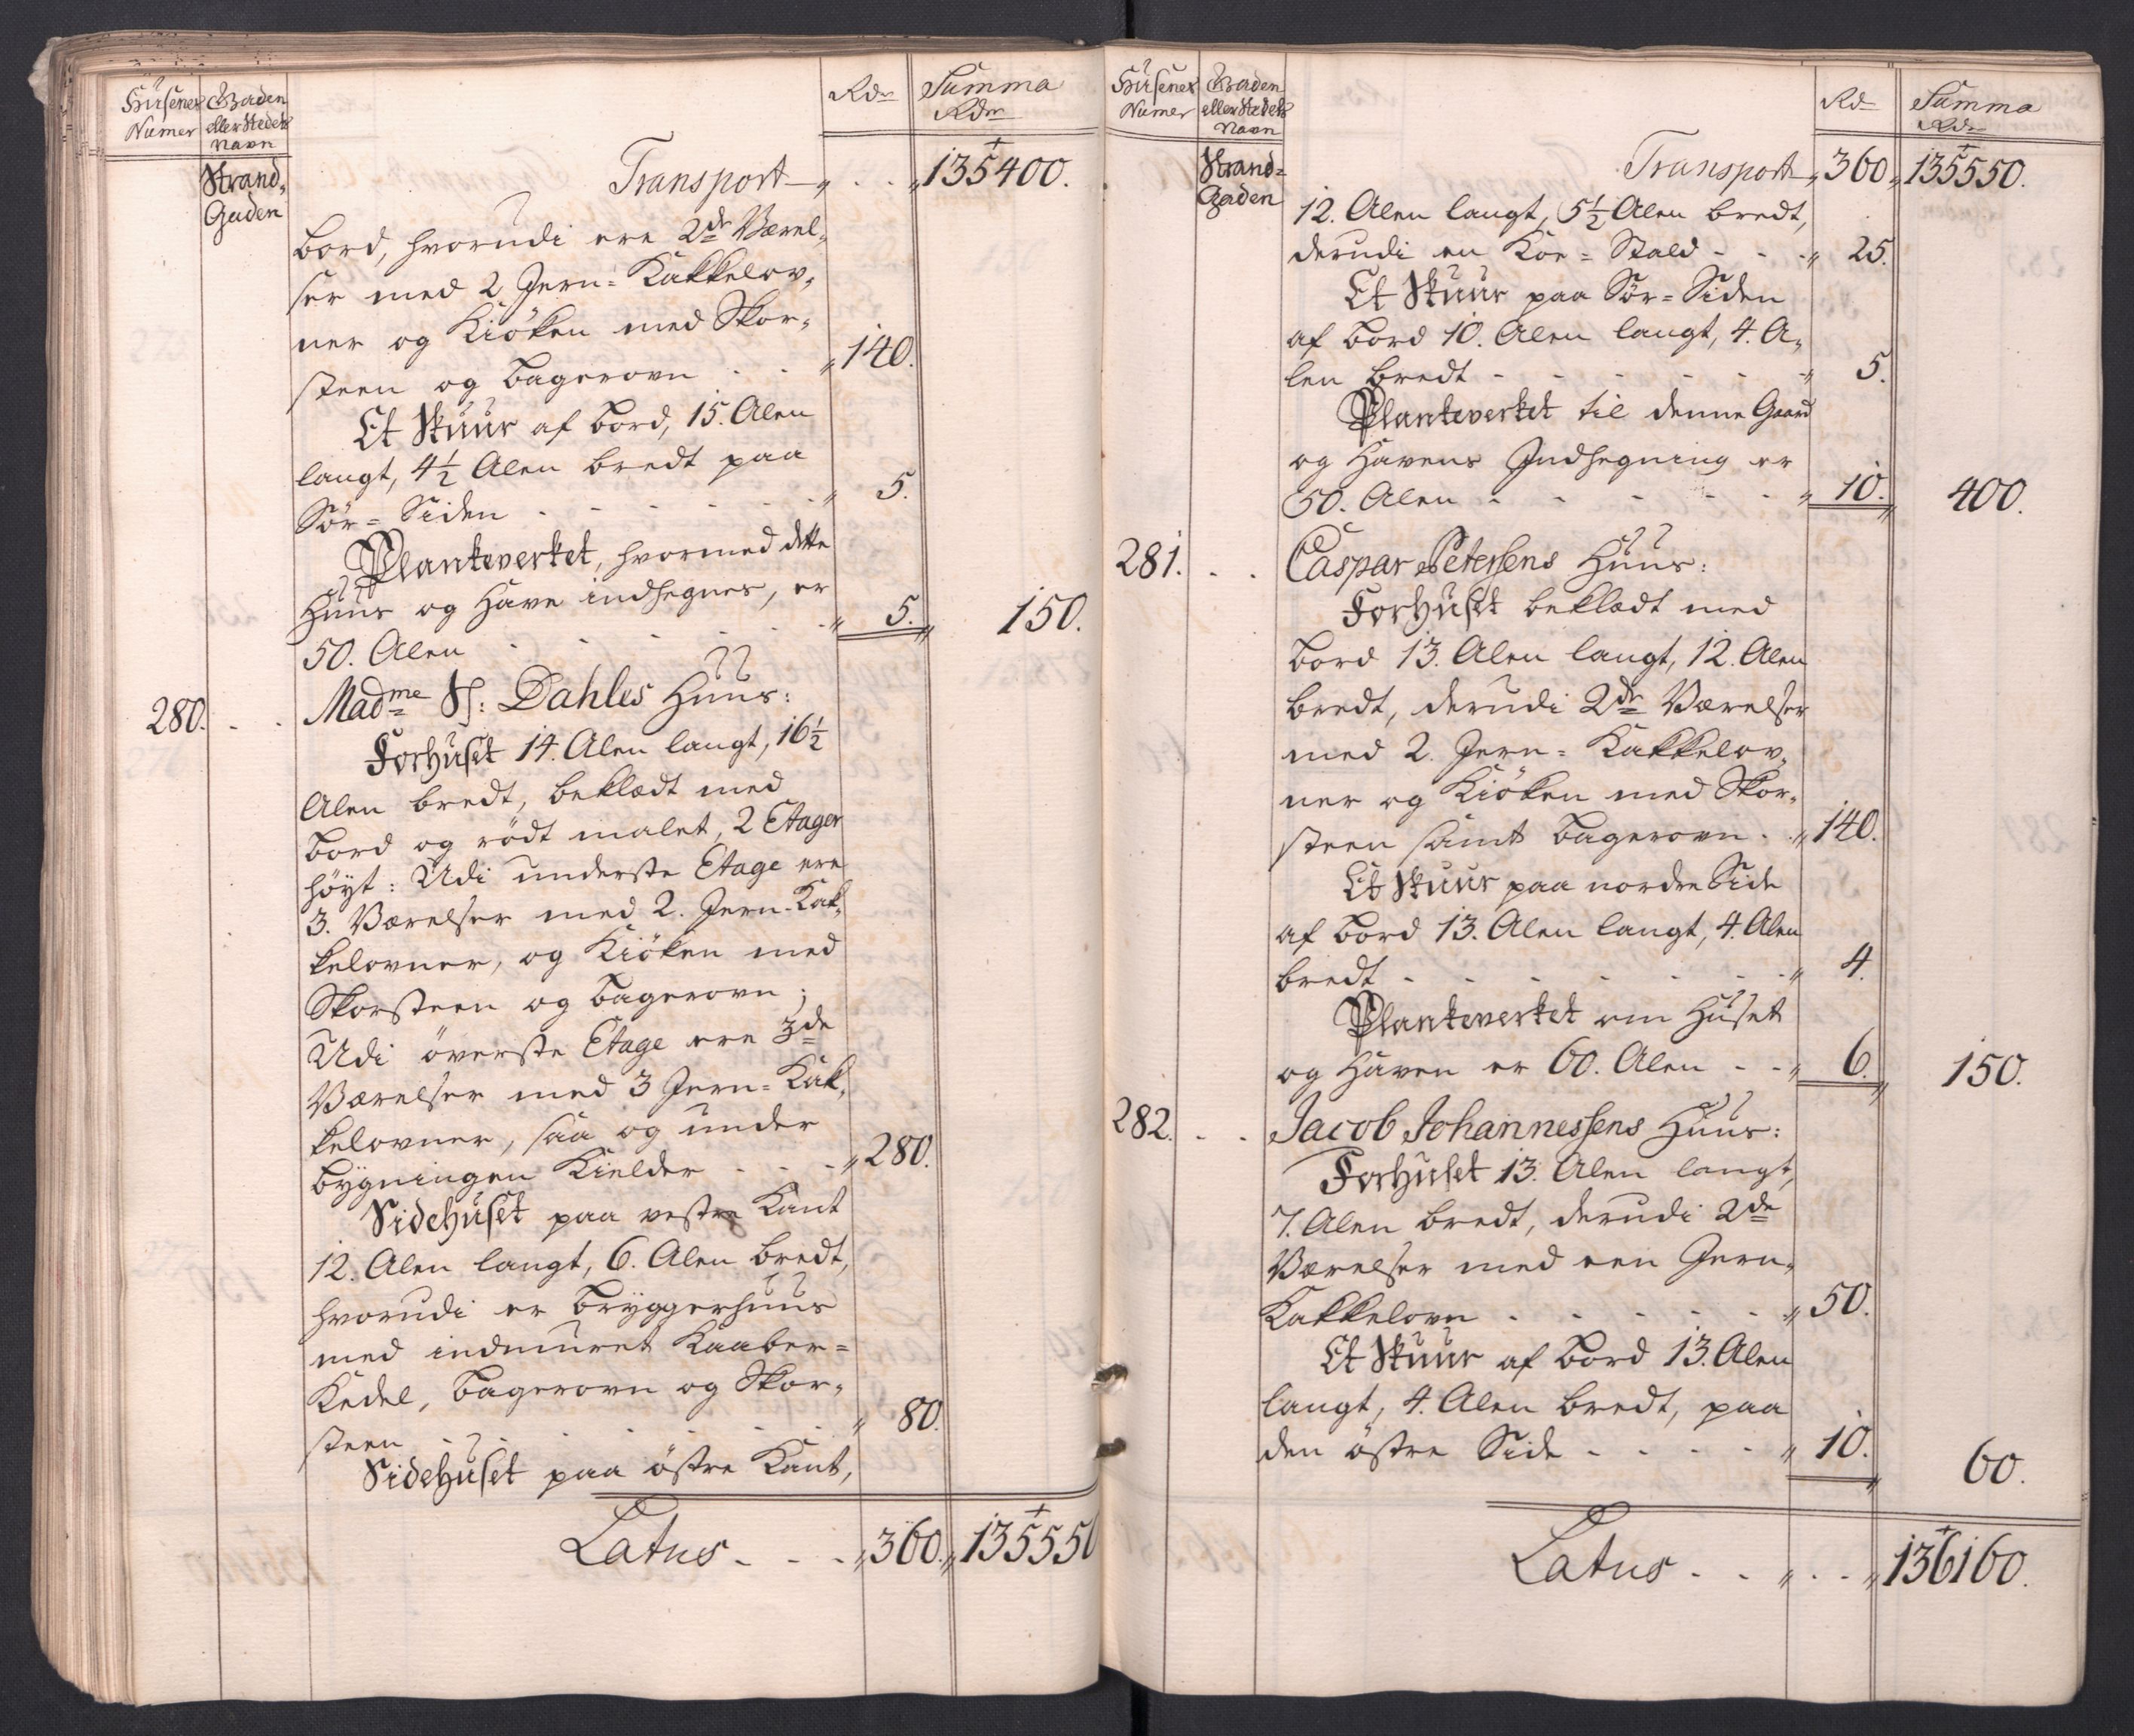 Husenes Gaden Rdr Summa
Numer eller Stedets Rdr
Navn
Strand-
Gaden
Transport - „ . . „ 135400.
bord, hvorudi ere 2de Værel-
ser med 2 Jern-Kakkelov-
ner og Kiöken med Skor-
steen og bagerovn - - „ 140.
Et Skuur af bord, 15. Alen
langt, 4½ Alen bredt paa
Sör-Siden - - - - - „ 5.
Plankeverket, hvormed dette
Huus og Have indhegnes, er
50. Alen - - - - „ 5. „ 150.
280. - - Madme Dahles Huus:
Forhuset 14. Alen langt, 16½
Alen bredt, beklædt med
bord og rödt malet, 2 Etager
höyt: Udi underste Etage ere
3. Værelser med 2. Jern-Kak-
kelovner, og Kiöken med
Skorsteen og bagerovn;
Udi överste Etage ere 3de
Værelser med 3 Jern-Kak-
kelovner, saa og under
bygningen Kielder - - - „ 280.
Sidehuset paa vestre Kant
12. Alen langt, 6. Alen bredt,
hvorudi er bryggerhuus
med indmuret Kaaber-
Kedel, bagerovn og Skor-
steen - - - - - - „ 80.
Sidehuset paa östre Kant,
Latus - - - „ 360. „ 135550
Husenes Gaden Rdr Summa
Numer eller Stedets Rdr
Navn
Strand-
Gaden
Transport - „ 360 „ 135550.
12. Alen langt, 5½ Alen bredt,
derudi en Koe-Stald - - - „ 25.
Et Skuur paa Sör-Siden
af bord 10. Alen langt, 4. A-
len bredt - - - - - - „ 5.
Plankeverket til denne Gaard
og Havens Indhegning er
50. Alen - - - - - „ 10. „ 400.
281. - - Caspar Petersens Huus:
Forhuset beklædt med
bord 13. Alen langt, 12. Alen
bredt, derudi 2de Værelser
med 2. Jern-Kakkelov-
ner og Kiöken med Skor-
steen samt bagerovn - „ 140.
Et Skuur paa nordre Side
af bord 13. Alen langt, 4. Alen
bredt - - - - - - - „ 4.
Plankeverket om Huset
og Haven er 60. Alen - - „ 6. „ 150.
282. - - Jacob Johannessens Huus:
Forhuset 13. Alen langt,
7. Alen bredt, derudi 2de
Værelser med een Jern-
Kakkelovn - - - - - „ 50.
Et Skuur af bord 13. Alen
langt, 4. Alen bredt, paa
den östre Side - - - - „ 10. „ 60.
Latus - - „ . - „ 136160.